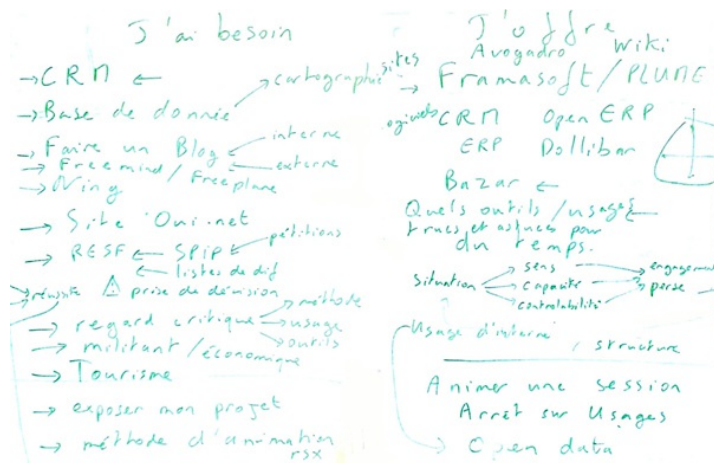 J'ai besoin
→ CRM ←
→ Base de donnée → cartographie
→ Faire un Blog ← interne
→ Freemind / Freeplane ← externe
→ Ning
→ Site Oui.net
→ RESF ← SPIP ← pétitions
← listes de dif
→ réussite ⚠ prise de décision
→ regard critique → méthode
→ usage
→ outils
→ militant / économique
→ Tourisme
→ exposer mon projet
→ méthode d'animation
rsx
J'offre
Avogadro Wiki
sites → Framasoft / PLUME
logiciels CRM Open ERP
ERP Dollibar
Bazar ←
Quels outils / usages ←
trucs et astuces pour
du temps.
Situation → sens → engagement
→ capacité → perse
→ controlabilité
Usage d'interne
, structure
Animer une session
Arrêt sur Usages
→ Open data